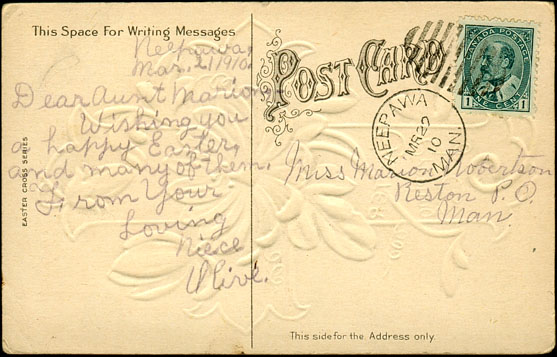 This Space For Writing Messages
Neepawa,
Mar. 21 1910.
Dear Aunt Marion
Wishing you
a happy Easter,
and many of them.
From Your
Loving
Niece
Olive.
EASTER CROSS SERIES
POST CARD
CANADA POSTAGE
1 ONE CENT 1
NEEPAWA
MR 22
10
MAN.
Miss Marion Robertson
Reston P.O.
Man.
This side for the Address only.